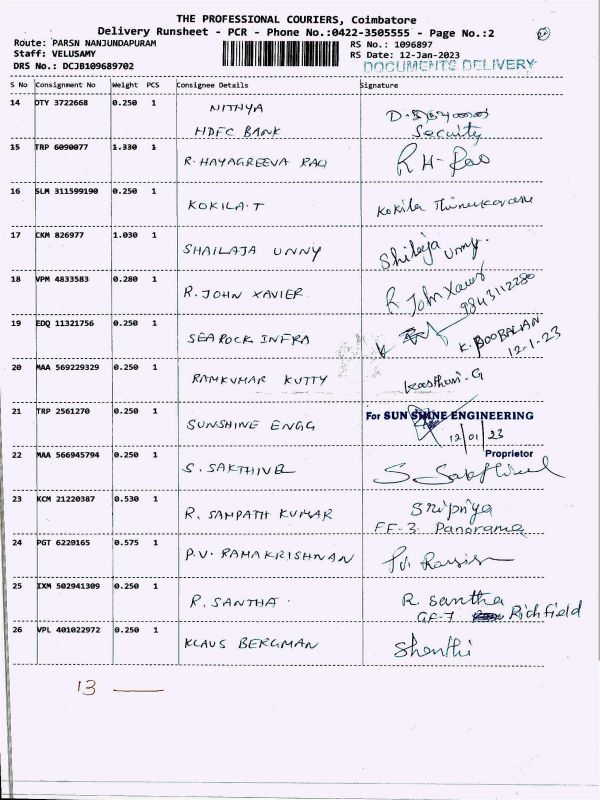 THE PROFESSIONAL COURIERS, Coimbatore
Delivery Runsheet - PCR - Phone No.:0422-3505555 - Page No.:2
Route: PARSN NANJUNDAPURAM
RS No.: 1096897
Staff: VELUSAMY
RS Date: 12-Jan-2023
DRS No.: DCJB109689702
DOCUMENTS DELIVERY
S No Consignment No Weight PCS Consignee Details Signature
14 DTY 3722668 0.250 1 NITHYA
HDFC BANK Security
15 TRP 6090077 1.330 1 R. HAYAGREEVA RAO R H- Rao
16 SLM 311599190 0.250 1 KOKILA.T Kokila
17 CKM 826977 1.030 1 SHAILAJA UNNY Shilaja Unny.
18 VPM 4833583 0.280 1 R. JOHN XAVIER R John Xavier
9843112280
19 EDQ 11321756 0.250 1 SEAROCK INFRA K. BOOBALAN
12-1-23
20 MAA 569229329 0.250 1 RAMKUMAR KUTTY Kasthuri. G
21 TRP 2561270 0.250 1 SUNSHINE ENGG For SUN SHINE ENGINEERING
12/01/23
Proprietor
22 MAA 566945794 0.250 1 S. SAKTHIVEL S Sakthivel
23 KCM 21220387 0.530 1 R. SAMPATH KUMAR Sripriya
FF-3 Panorama
24 PGT 6220165 0.575 1 P.V. RAMAKRISHNAN
25 IXM 502941309 0.250 1 R. SANTHA. R Santha
GF-7 Richfield
26 VPL 401022972 0.250 1 KLAUS BERGMAN Shenthi
13